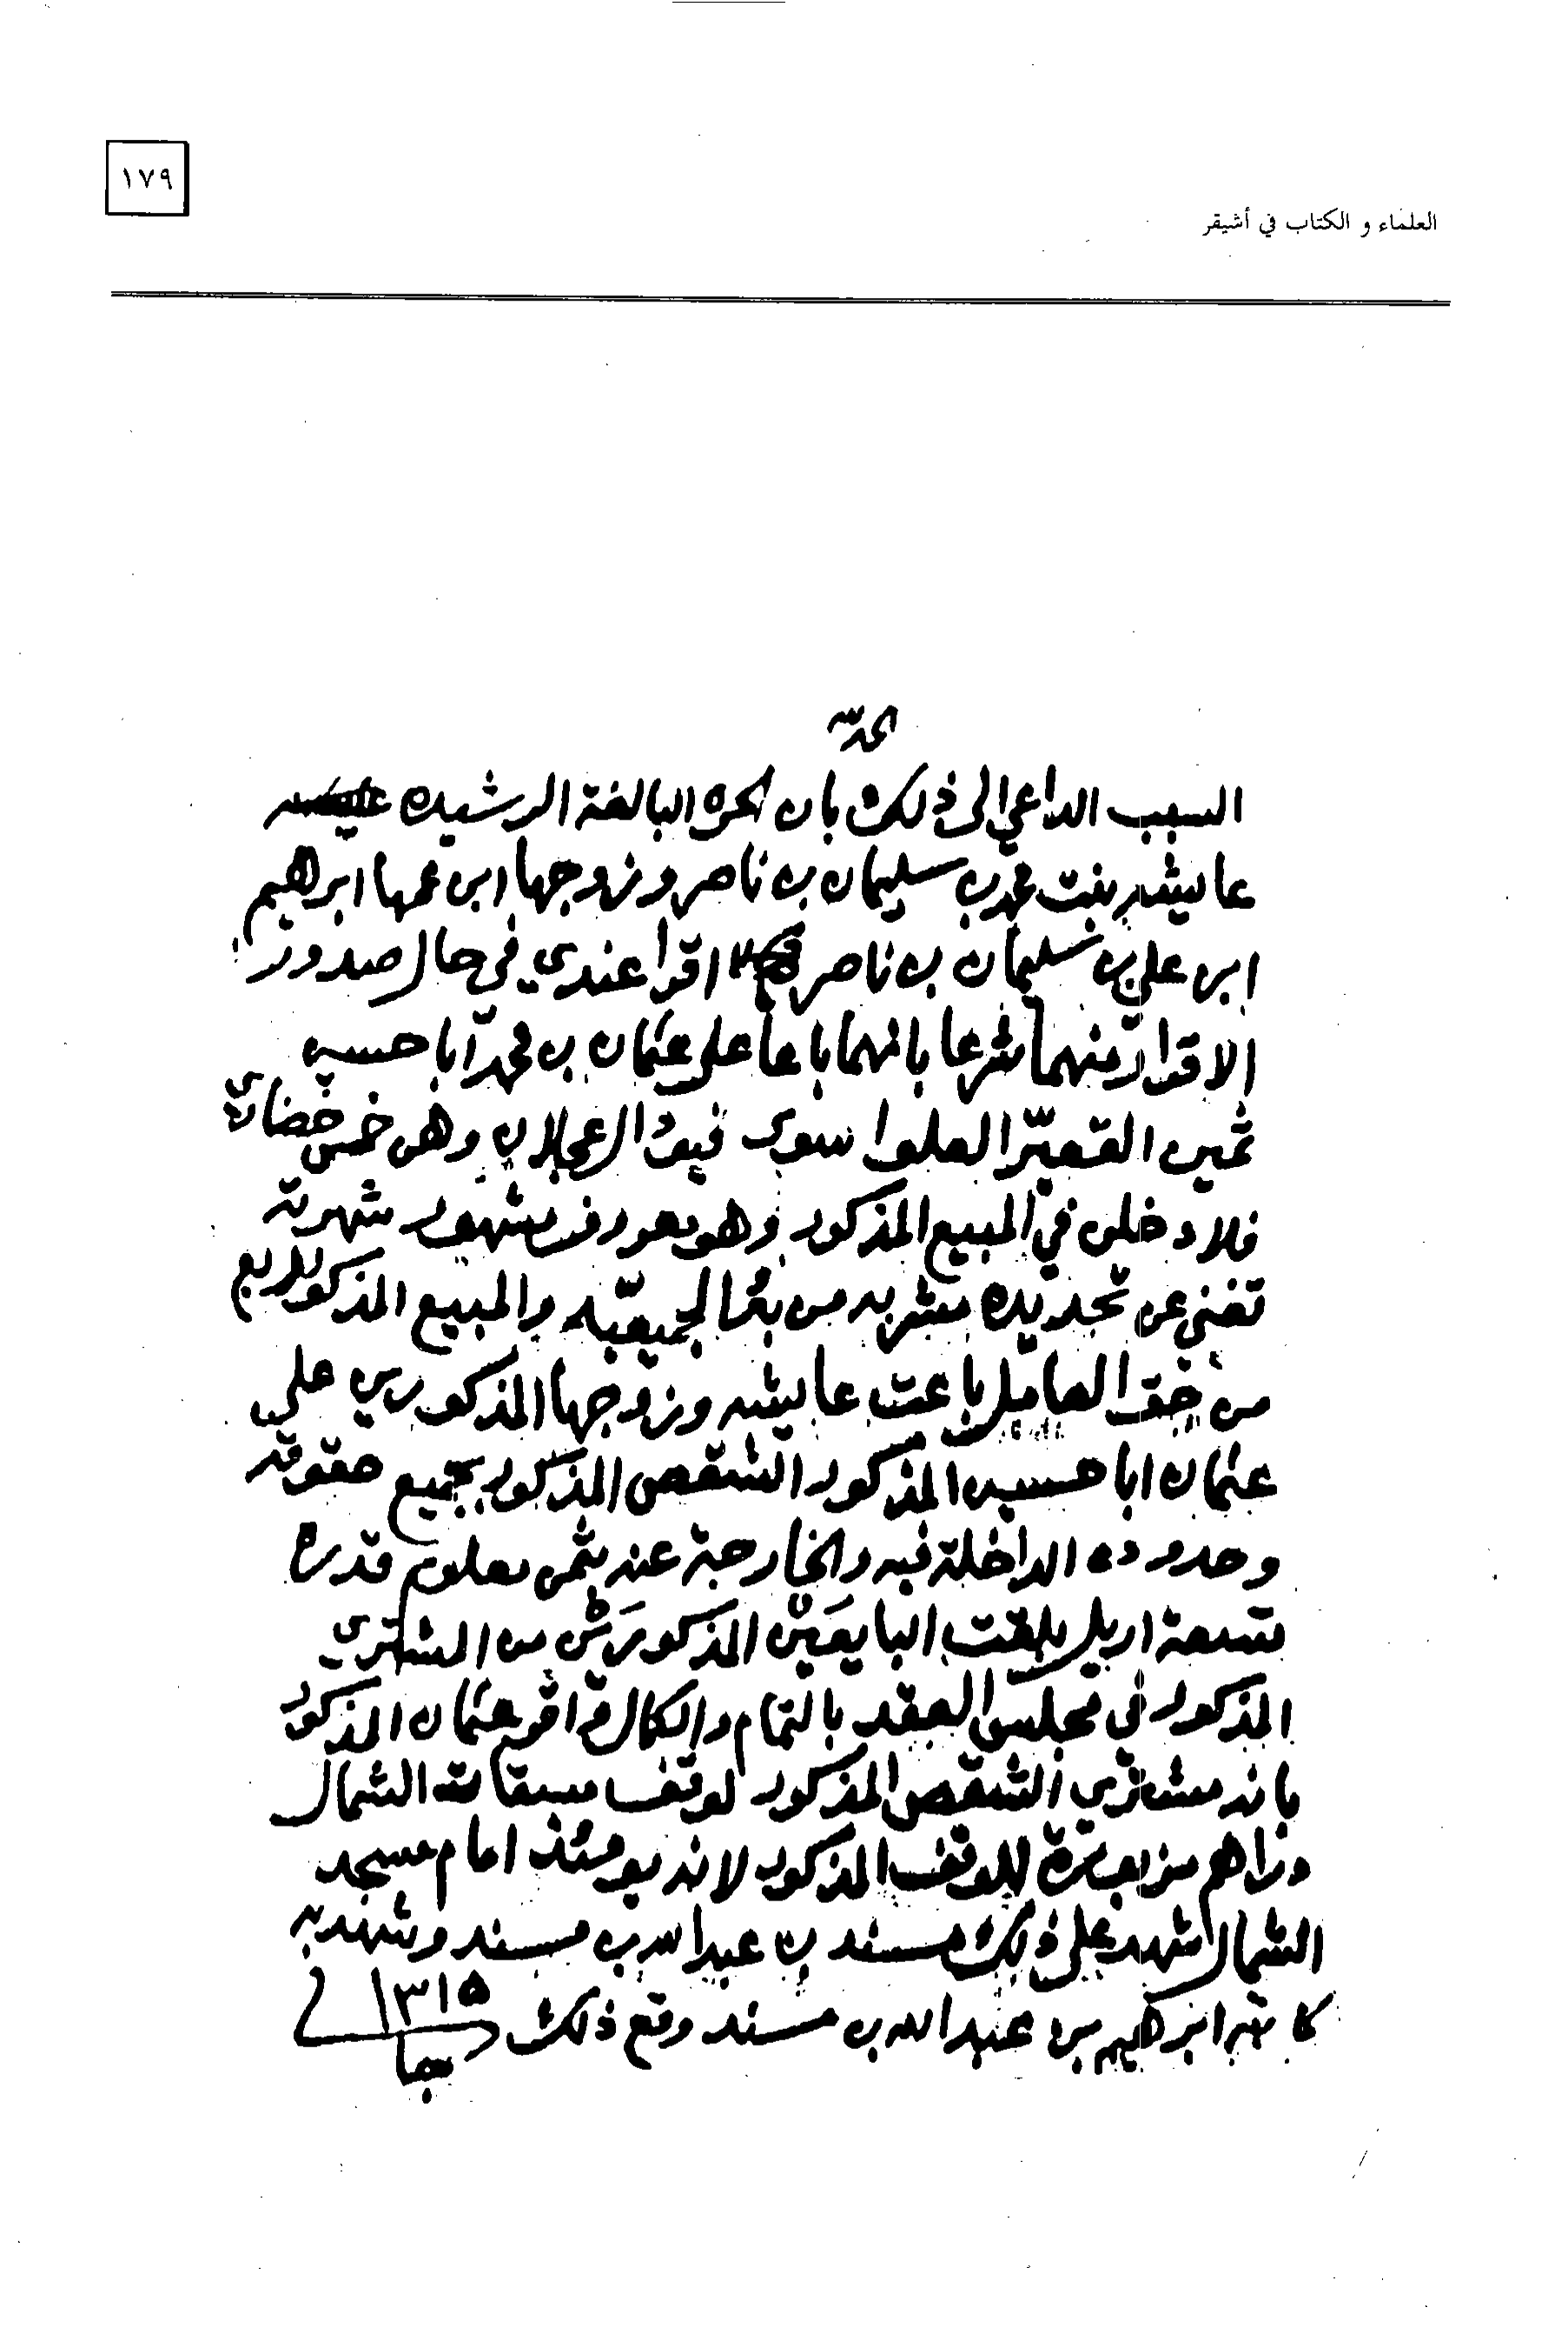 ١٧٩
العلماء و الكتاب في أشيقر
الحمد لله
السبب الداعي الى ذلك بان الحره البالغة الرشيده
عايشه بنت محمد بن سليمان بن ناصر وزوجها ابن عمها ابرهيم
ابن علي بن سليمان بن ناصر اقرا عندي في حال صدور
الاقرار منهما شرعا بانهما باعا على عثمان بن محمد ابا حسين
ثمين العلوا سوى العجلان وهن خمس
فلا دخلن في المبيع المذكور وهو معروف مشهور شهرته
تغني عن تحديده شربه من والمبيع المذكور
من حق العامل باعت عايشه وزوجها المذكورين على
عثمان ابا حسين المذكور الشقص المذكور بجميع حقوقه
وحدوده الداخلة فيه والخارجة عنه بثمن معلوم قدره
تسعة اريل بلغت البايعين المذكورين من المشتري
المذكور في مجلس العقد بالتمام والكمال اقر عثمان المذكور
بانه مشتري الشقص المذكور لوقف الشمال
للوقف المذكور لانه يومئذ امام مسجد
الشمال شهد على ذلك مسند بن عبدالله بن مسند وشهد به
كاتبه ابرهيم بن عبدالله بن مسند وقع ذلك ١٣١٥